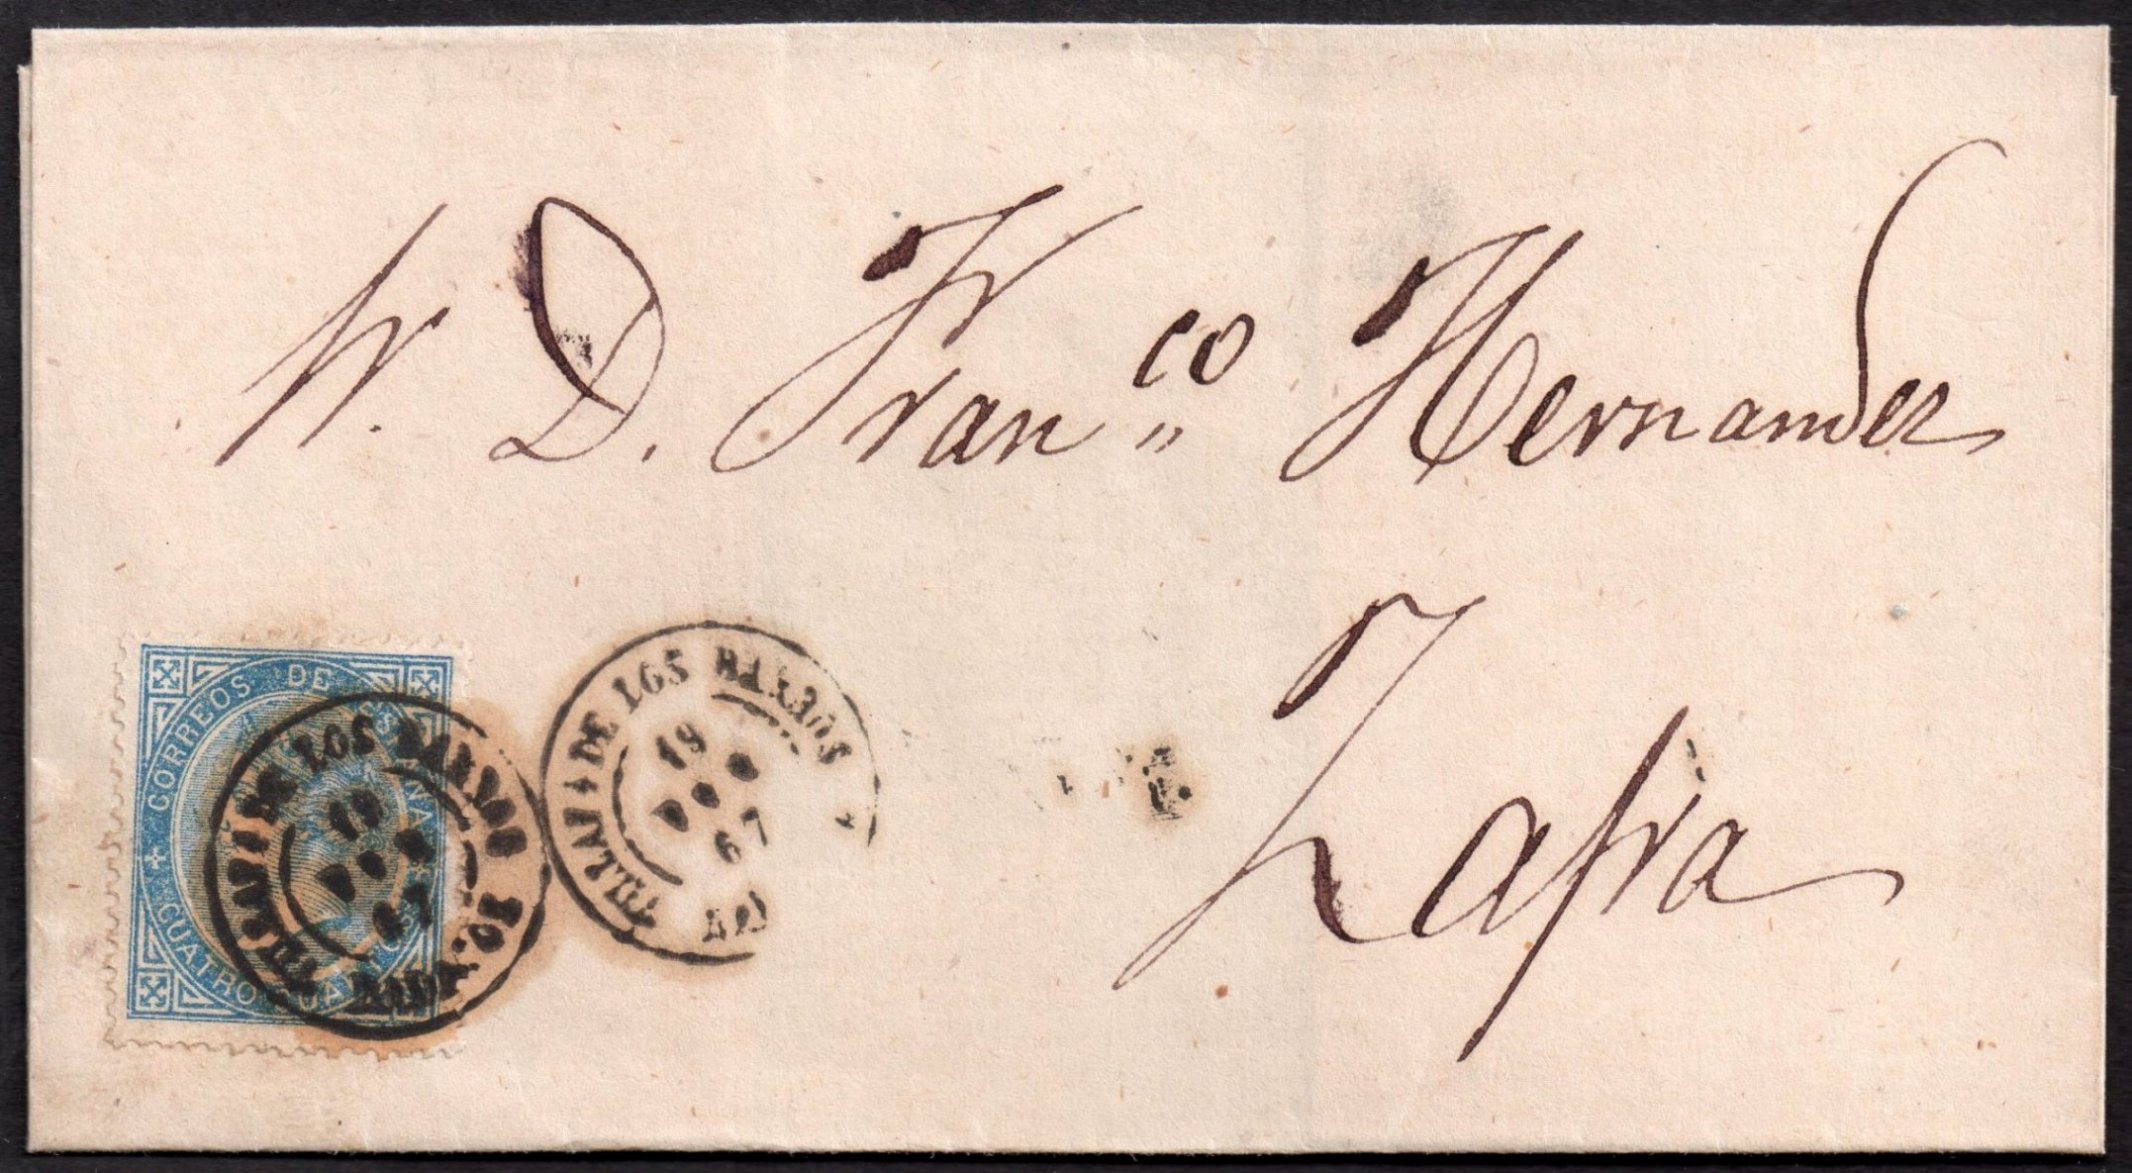 Sr. D. Fran.co Hernandez
Zafra
CORREOS DE ESPAÑA
CUATRO CUARTOS
VILLAF. DE LOS BARROS
19
67
BADA
VILLAF. DE LOS BARROS
19
67